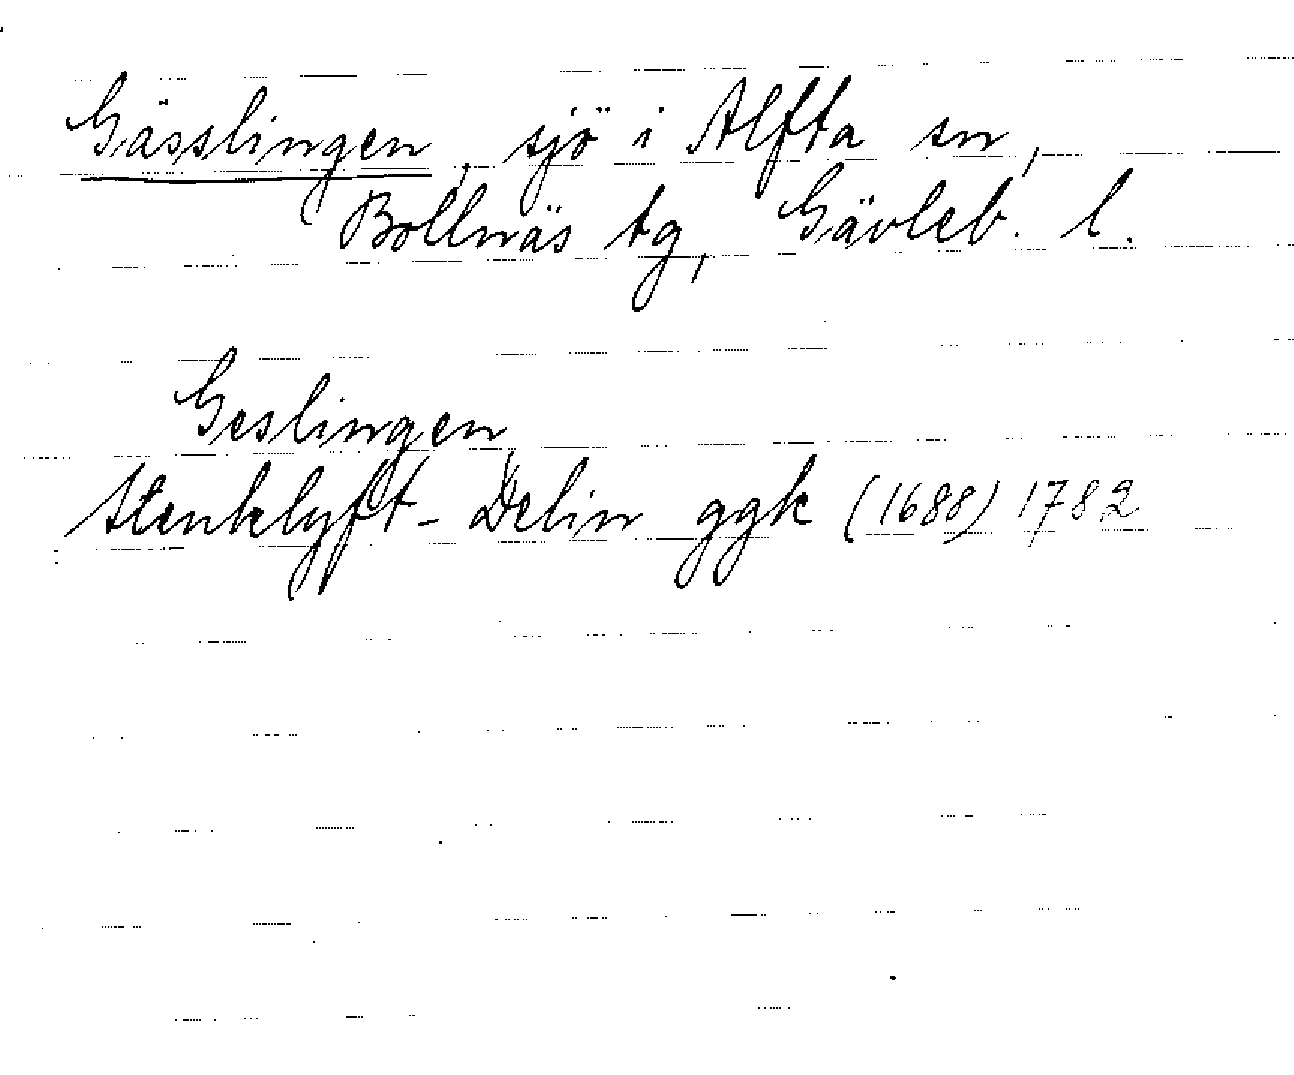 Gässlingen, sjö i Alfta sn,
Bollnäs tg, Gävleb. l.
Geslingen
Stenklyft-Delin ggk (1688) 1782